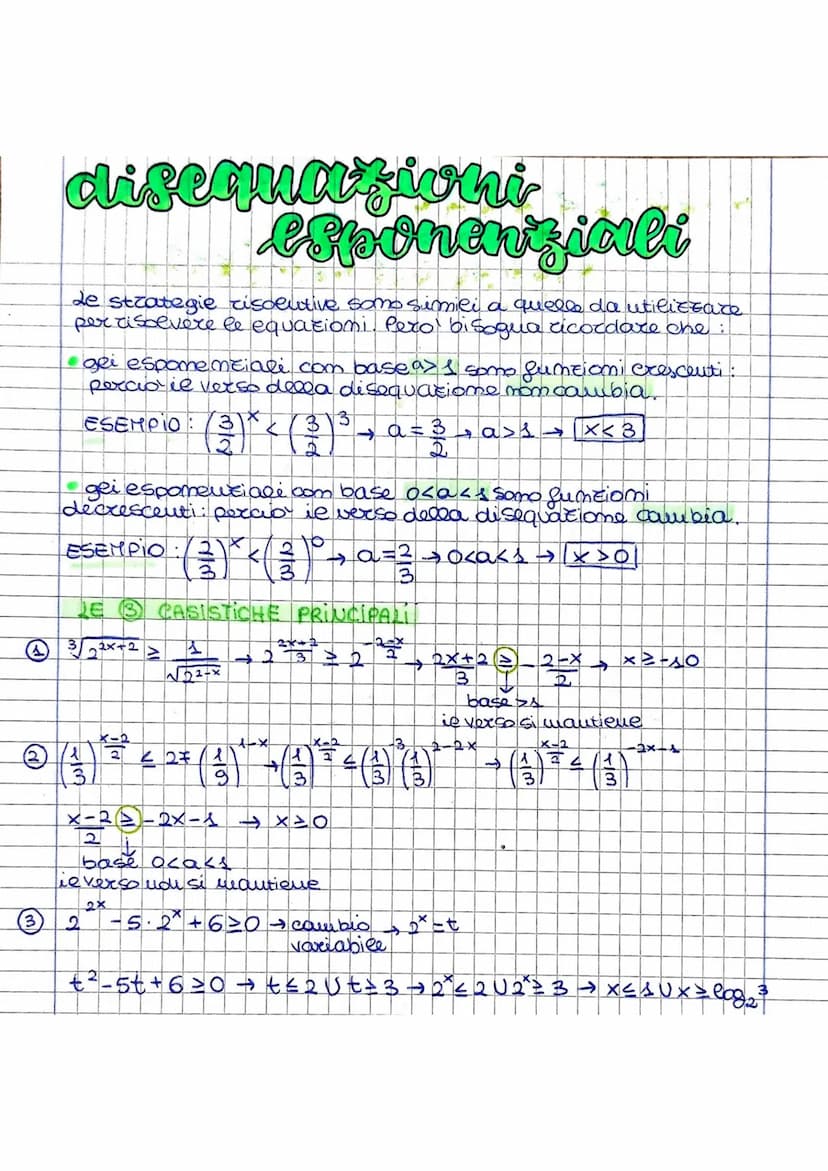 disequazioni
esponenziali
Le strategie risolutive sono simili a quelle da utilizzare
per risolvere le equazioni. Pero' bisogna ricordare che :
• gli esponenziali con base a > 1 sono funzioni crescenti :
perciò il verso della disequazione non cambia.
ESEMPIO : (3/2)^x < (3/2)^3 → a = 3/2 → a > 1 → x < 3
• gli esponenziali con base 0<a<1 sono funzioni
decrescenti : perciò il verso della disequazione cambia.
ESEMPIO : (2/3)^x < (2/3)^0 → a = 2/3 → 0<a<1 → x > 0
LE ③ CASISTICHE PRINCIPALI
① ∛(2^(2x+2)) ≥ 1/√(2^(2-x)) → 2^((2x+2)/3) ≥ 2^(-(2-x)/2) → (2x+2)/3 ≥ - (2-x)/2 → x ≥ -10
base >1
il verso si mantiene
② (1/3)^((x-2)/2) ≤ 27 (1/9)^(1-x) → (1/3)^((x-2)/2) ≤ (1/3)^(-3) (1/3)^(2-2x) → (1/3)^((x-2)/2) ≤ (1/3)^(-2x-1)
(x-2)/2 ≥ -2x-1 → x ≥ 0
base 0<a<1
il verso non si mantiene
③ 2^(2x) - 5 · 2^x + 6 ≥ 0 → cambio → 2^x = t
variabile
t² - 5t + 6 ≥ 0 → t ≤ 2 U t ≥ 3 → 2^x ≤ 2 U 2^x ≥ 3 → x ≤ 1 U x ≥ log₂3